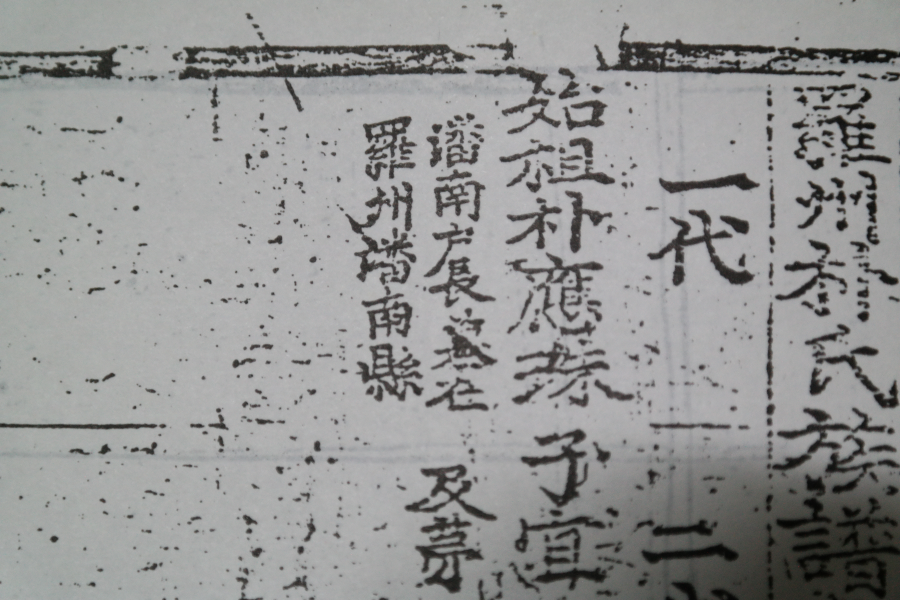 朴氏族譜
一代
始祖朴應珠
潘南戶長墓在
羅州潘南縣
二
子宜
及第